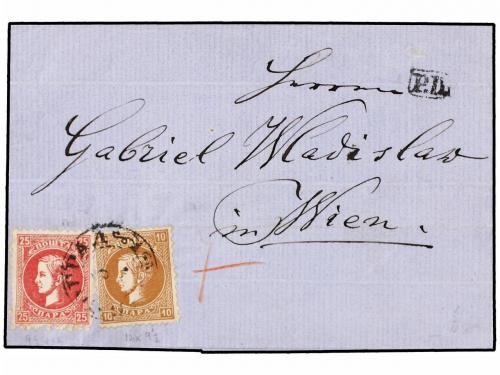 Herren
P.D.
Gabriel Wladislaw
in Wien.
25 ПОШТА 25
25 ПАРА 25
10 10
10 ПАРА 10